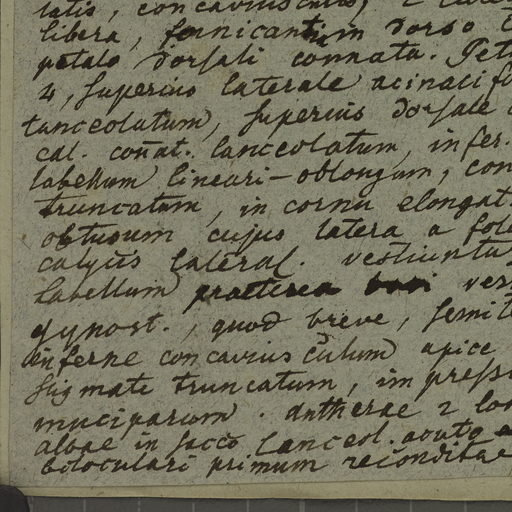 latis, concaviusculis, 2
libera, fornicantim dorso
petalo dorsali connata. Pet
4, superius laterale acinacif
lanceolatum, superius dorsale
cal. coñat. lanceolatum, infer.
labellum lineari-oblongum, con
truncatum, in cornu elongat
obtusum cujus latera a fol
calycis lateral. vestiuntu
labellum praeterea basi ves
gynost., quod breve, semit
inferne concaviusculum apice
stigmate truncatum, impress
muciparum. Antherae 2 lon
albae in sacco lanceol. acuto
biloculari primum reconditae